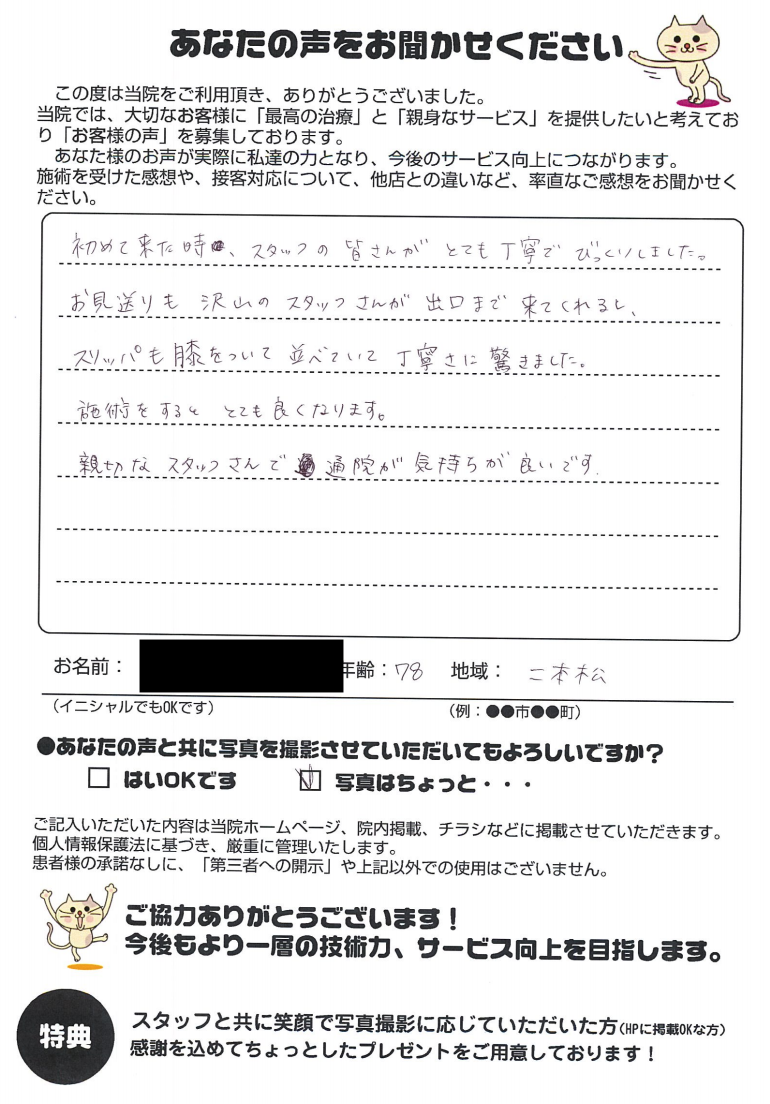 あなたの声をお聞かせください
この度は当院をご利用頂き、ありがとうございました。
当院では、大切なお客様に「最高の治療」と「親身なサービス」を提供したいと考えてお
り「お客様の声」を募集しております。
あなた様のお声が実際に私達の力となり、今後のサービス向上につながります。
施術を受けた感想や、接客対応について、他店との違いなど、率直なご感想をお聞かせく
ださい。
初めて来た時、スタッフの皆さんがとても丁寧でびっくりしました。
お見送りも沢山のスタッフさんが出口まで来てくれるし、
スリッパも膝をついて並べていて丁寧さに驚きました。
施術をするととても良くなります。
親切なスタッフさんで通院が気持ちが良いです.
お名前： 年齢：78 地域： 二本松
（イニシャルでもOKです） （例：●●市●●町）
●あなたの声と共に写真を撮影させていただいてもよろしいですか？
□ はいOKです ☑ 写真はちょっと・・・
ご記入いただいた内容は当院ホームページ、院内掲載、チラシなどに掲載させていただきます。
個人情報保護法に基づき、厳重に管理いたします。
患者様の承諾なしに、「第三者への開示」や上記以外での使用はございません。
ご協力ありがとうございます！
今後もより一層の技術力、サービス向上を目指します。
特典
スタッフと共に笑顔で写真撮影に応じていただいた方（HPに掲載OKな方）
感謝を込めてちょっとしたプレゼントをご用意しております！